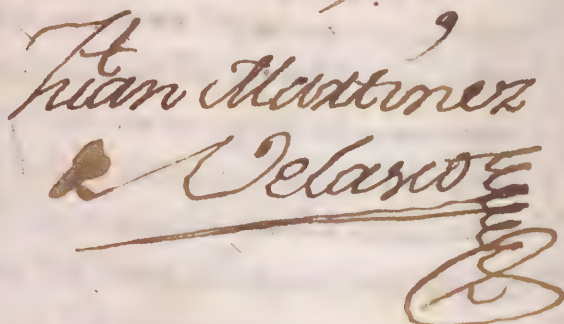 Juan Martinez
Velasco